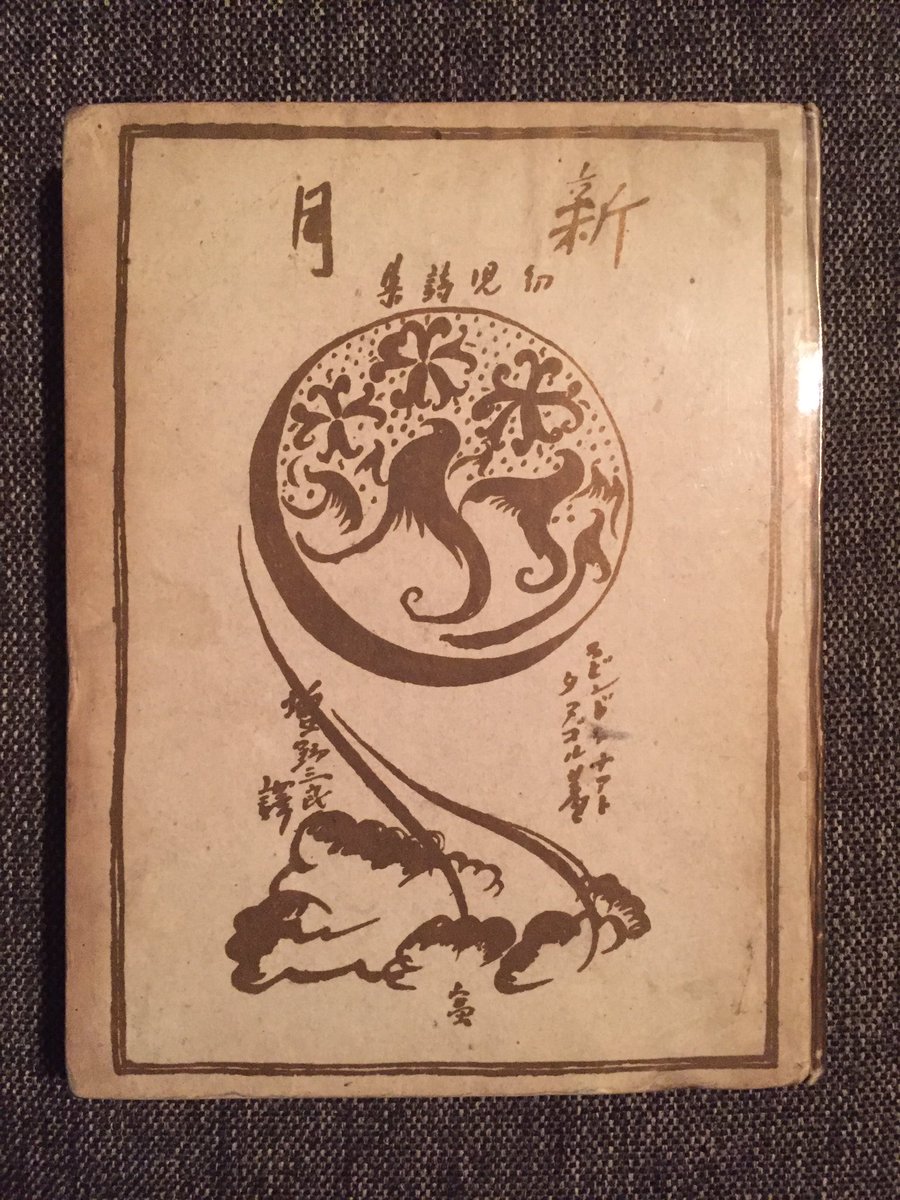 新月
幼児詩集
ラビンドラナアト
タアゴル著
増野三良
譯